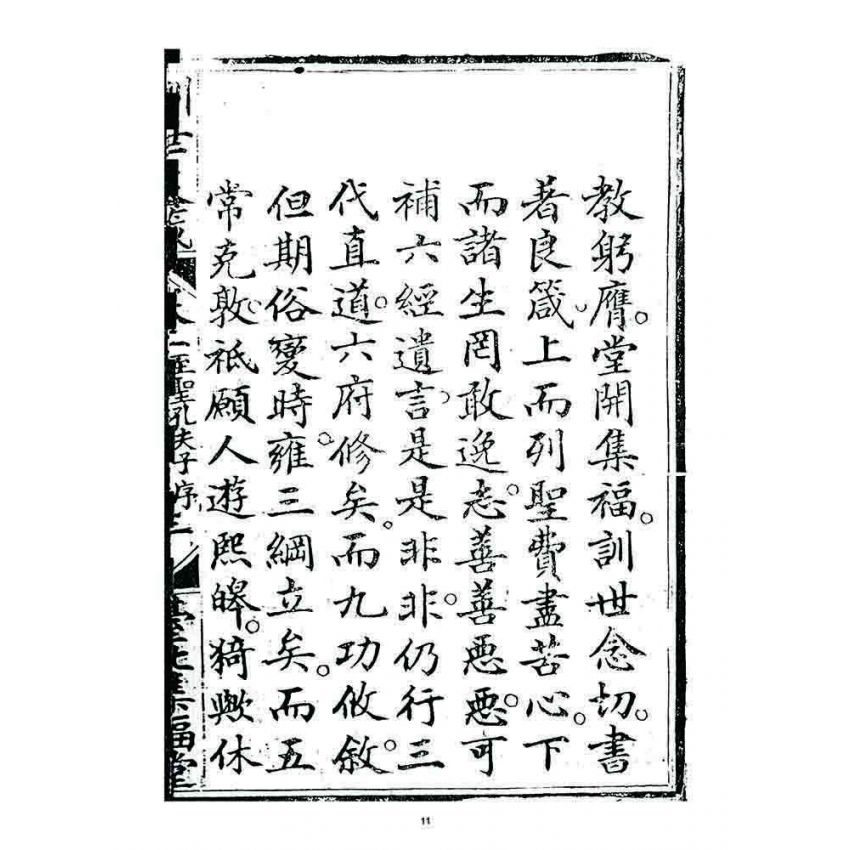 教躬膺。堂開集福。訓世念切。書
著良箴。上而列聖費盡苦心。下
而諸生罔敢逸志。善善惡惡。可
補六經遺言。是是非非。仍行三
代直道。六府修矣。而九功攸敘。
但期俗變時雍。三綱立矣。而五
常克敦。祇願人遊熙皞。猗歟休
至聖孔夫子序
集福堂
11